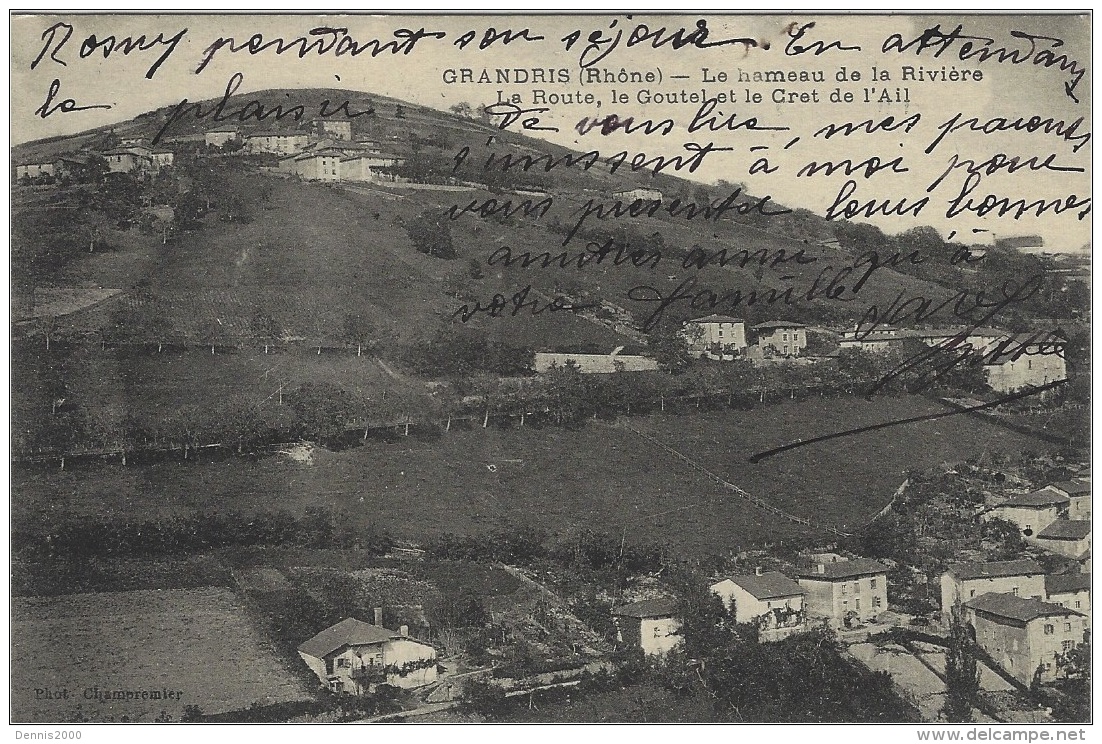 Rosny pendant son séjour. En attendant
GRANDRIS (Rhône) — Le hameau de la Rivière
La Route, le Goutel et le Cret de l'Ail
le plaisir
De vous lire, mes parents
s'unissent à moi pour
vous présenter leurs bonnes
amitiés ainsi qu'à
votre famille
Phot. Champremier
Dennis2000
www.delcampe.net